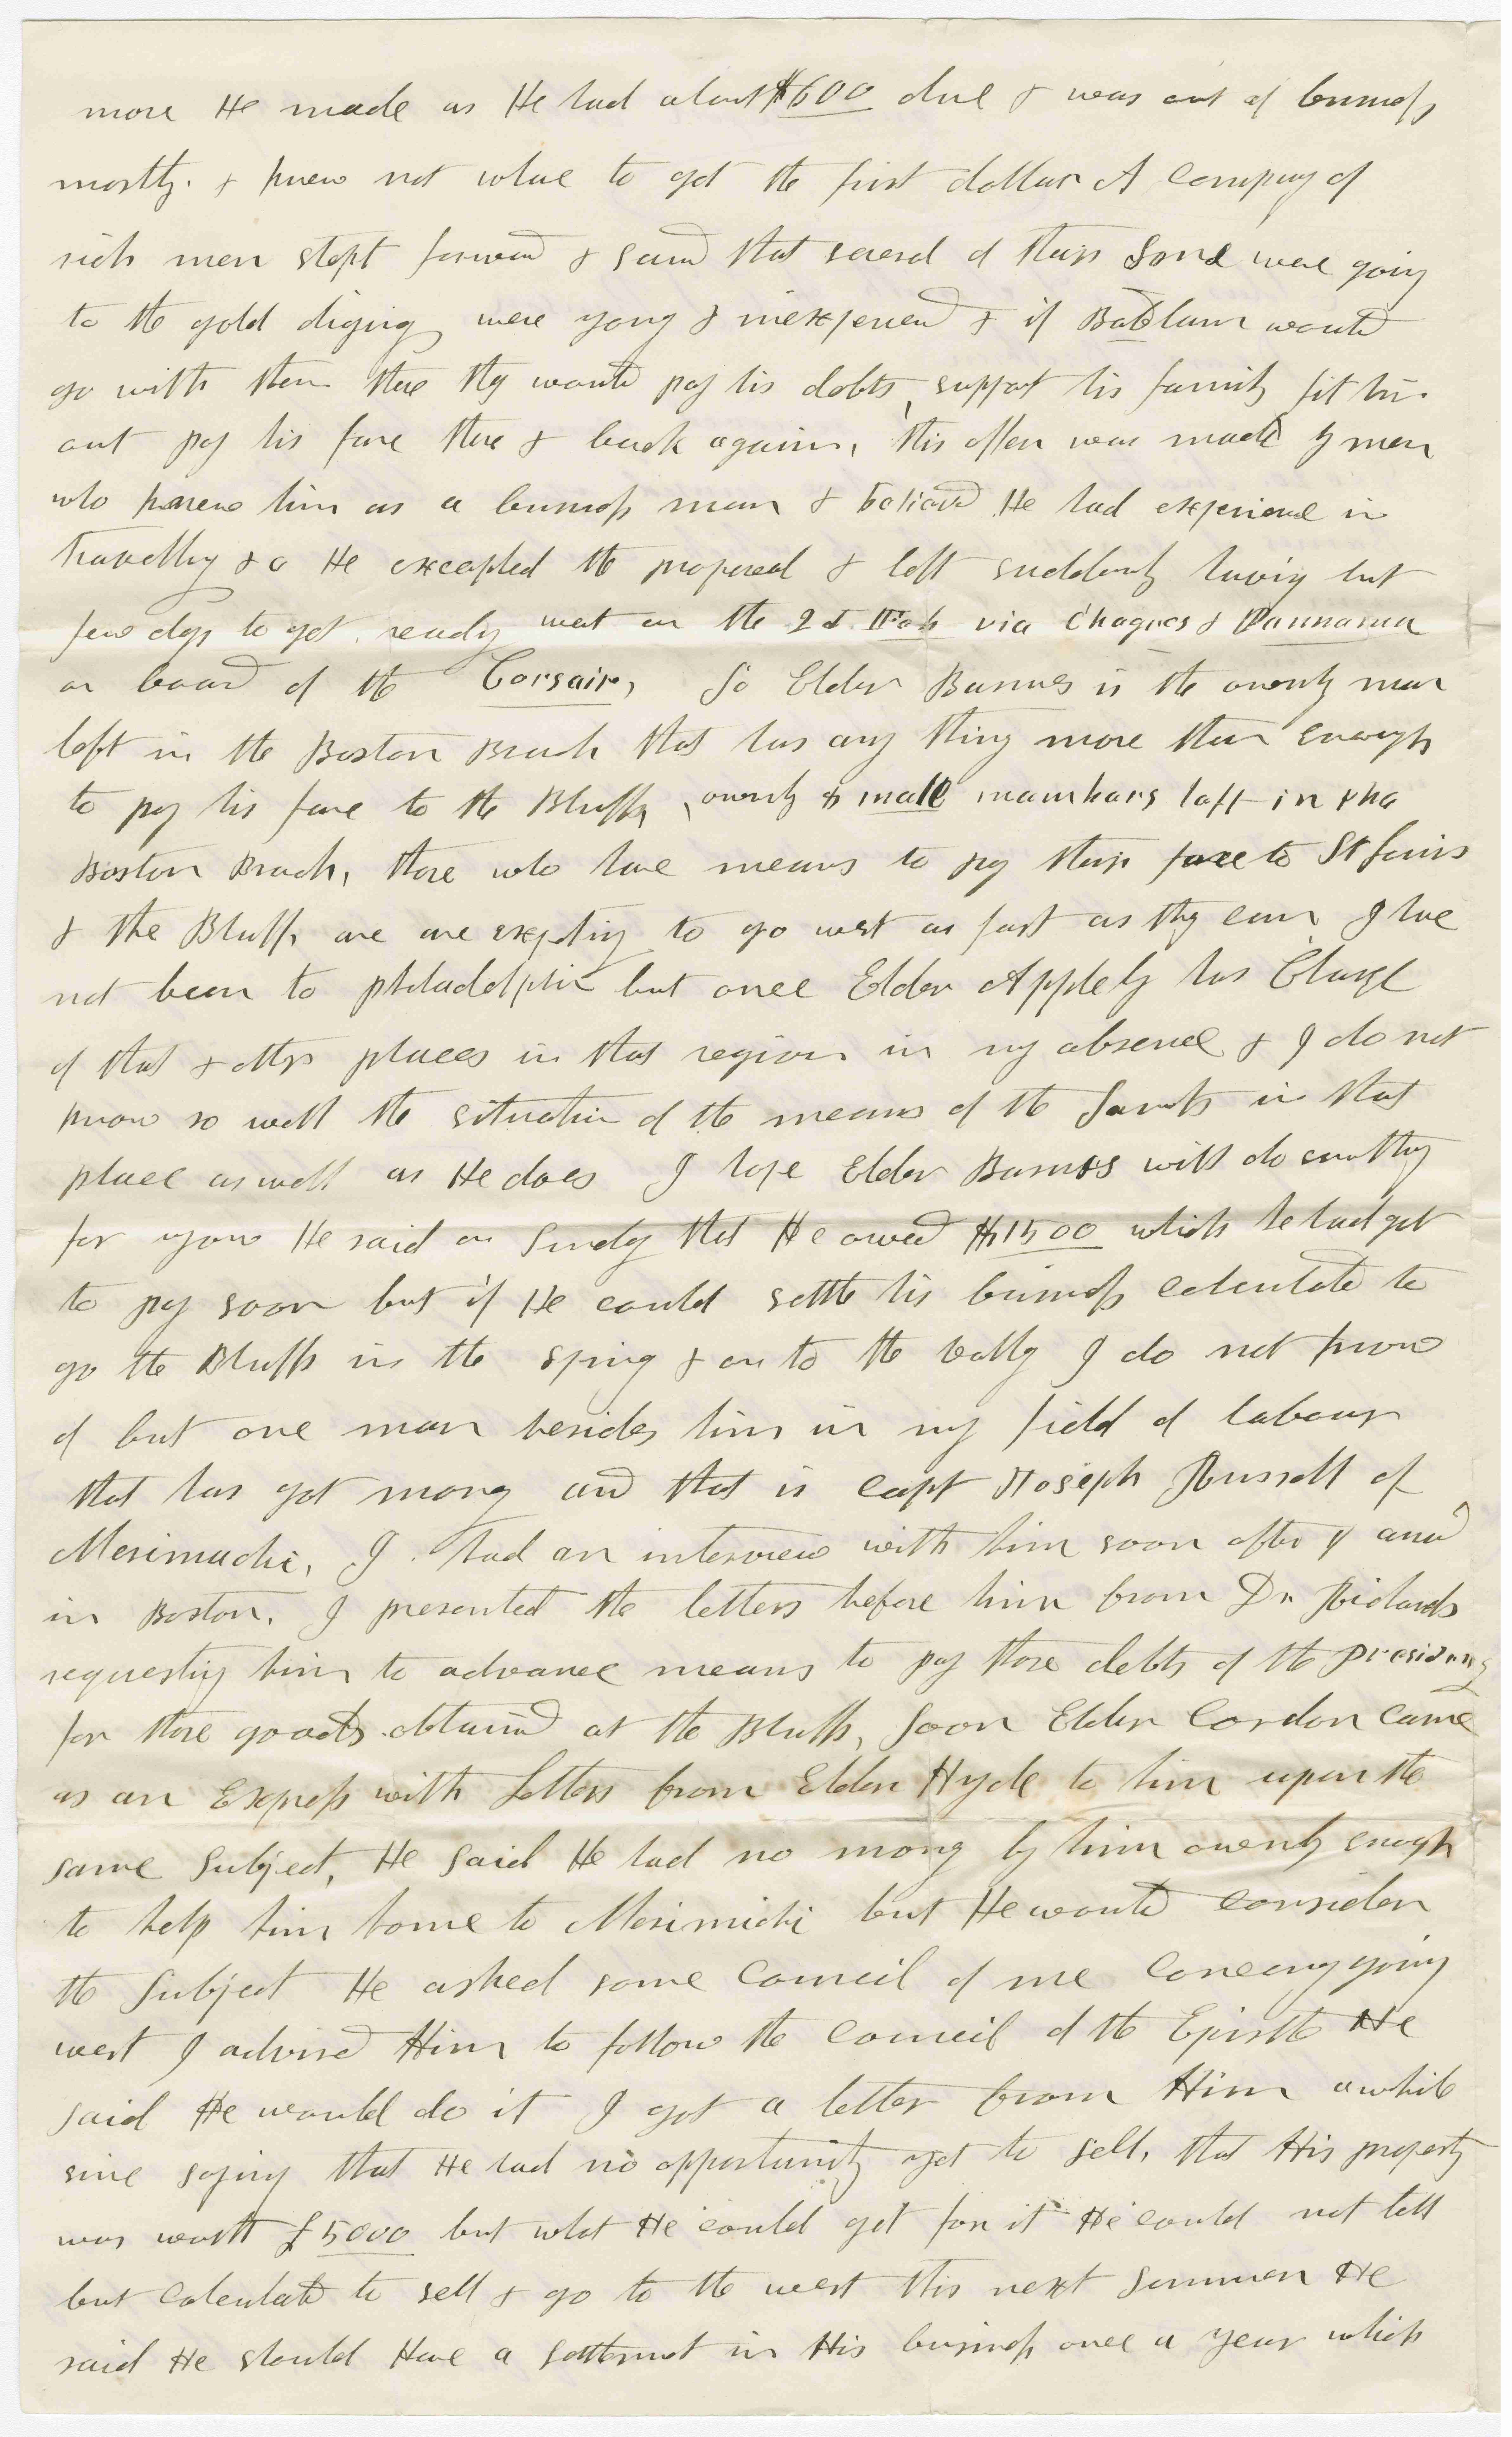 more He made as He had about $600 due & was out of business
mostly. & knew not whare to get the first dollar A Company of
rich men stept forward & said that several of their Sons were going
to the gold diging were yong & inexperiend & if Badlam would
go with them there they would pay his debts, support his family fit him
out pay his fare there & back again, this offer was made by men
who knew him as a business man & believed He had experience in
Travelling & so He excepted the proposal & left suddenly having but
few days to get ready went on the 2d Feb via Chagres & Pannama
on board of the Corsair, So Elder Barnes is the ownly man
left in the Boston Branch that has any thing more than enough
to pay his fare to the Bluffs, ownly 8 male members left in the
Boston Branch, those who have means to pay their fare to St Louis
& the Bluffs are are expeting to go west as fast as they can I have
not been to philadelphia but once Elder Appleby has Charge
of that & other places in that region in my absence & I do not
know so well the situation of the means of the Saints in that
place as well as He does I hope Elder Barnes will do sumthing
for you He said on Sunday that He owed $1500 which he had got
to pay soon but if He could settle his business calculated to
go the Bluffs in the spring & on to the vally I do not know
of but one man besides him in my field of labour
that has got mony and that is Capt Joseph Russell of
Merimachi, I had an interview with him soon after I arivd
in Boston, I presented the letters before him from Dr Richards
requesting him to advance means to pay those debts of the Presidency
for those goods obtained at the Bluffs, Soon Elder Cordon Came
as an Express with Letters from Elder Hyde to him upon the
same Subject, He said He had no mony by him ownly enough
to help him home to Merimichi but He would consider
the Subject He asked some Council of me Concerng going
west I advised Him to follow the Council of the Epistle He
said He would do it I got a letter from Him awhile
sine saying that He had no opportunity yet to sell, that His property
was worth £5000 but what He could get for it He could not tell
but Calculated to sell & go to the west this next Summer He
said He should Have a settlemet in His business once a year which